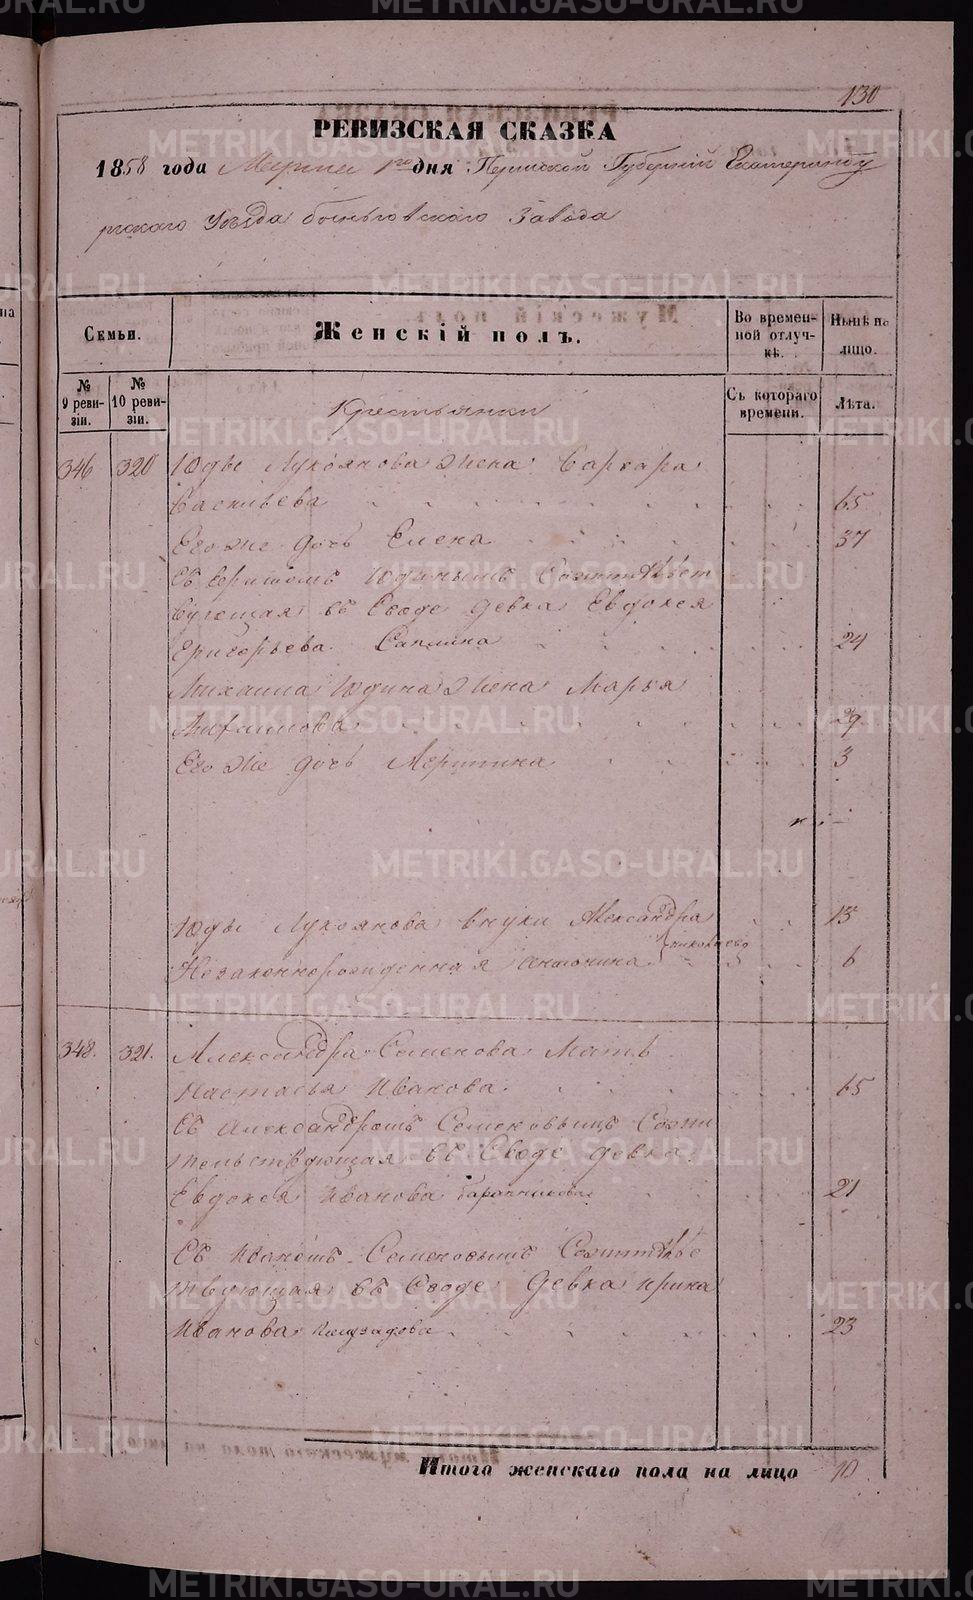 130
РЕВИЗСКАЯ СКАЗКА
1858 года Марта 1го дня Пермской Губерніи Екатеринбу
ргскаго Уѣзда Быньговскаго Завода
Семьи.
Женскій полъ.
Во времен-
ной отлуч-
кѣ.
Нынѣ на
лицо.
№
9 реви-
зіи.
№
10 реви-
зіи.
Съ котораго
времени.
Лѣта.
Крестьянки
346 320 Юды Лукоянова Жена Варвара
Васильева 65
Его же дочь Елена 37
Съ Юдинымъ
въ Своде девка Евдокея
Григорьева 24
Михаила Юдина Жена Марья
29
Его же дочь 3
Юды Лукоянова внуки Александра 13
Незаконнорожденная Антонина 6
348. 321. Александра Семенова Мать
Настасья Иванова 65
Съ Александромъ Семеновымъ Сожи
тельствующая въ Своде девка
Евдокея Иванова 21
Съ Иваномъ Семеновымъ Сожительс
твующая въ Своде Девка Ирина
Иванова 23
Итого женскаго пола на лицо 10
METRIKI.GASO-URAL.RU